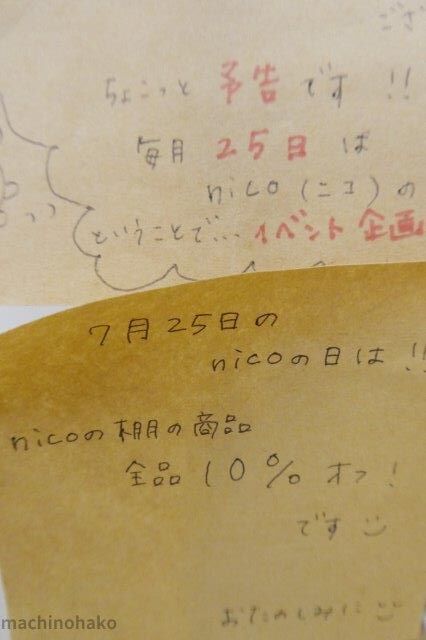 ござ
ちょこっと 予告 です !!
毎月 25日 は
nico (ニコ) の
ということで... イベント 企画
7月25日の
nicoの日は!!
nicoの棚の商品
全品 10% オフ!
です
おたのしみに
machinohako